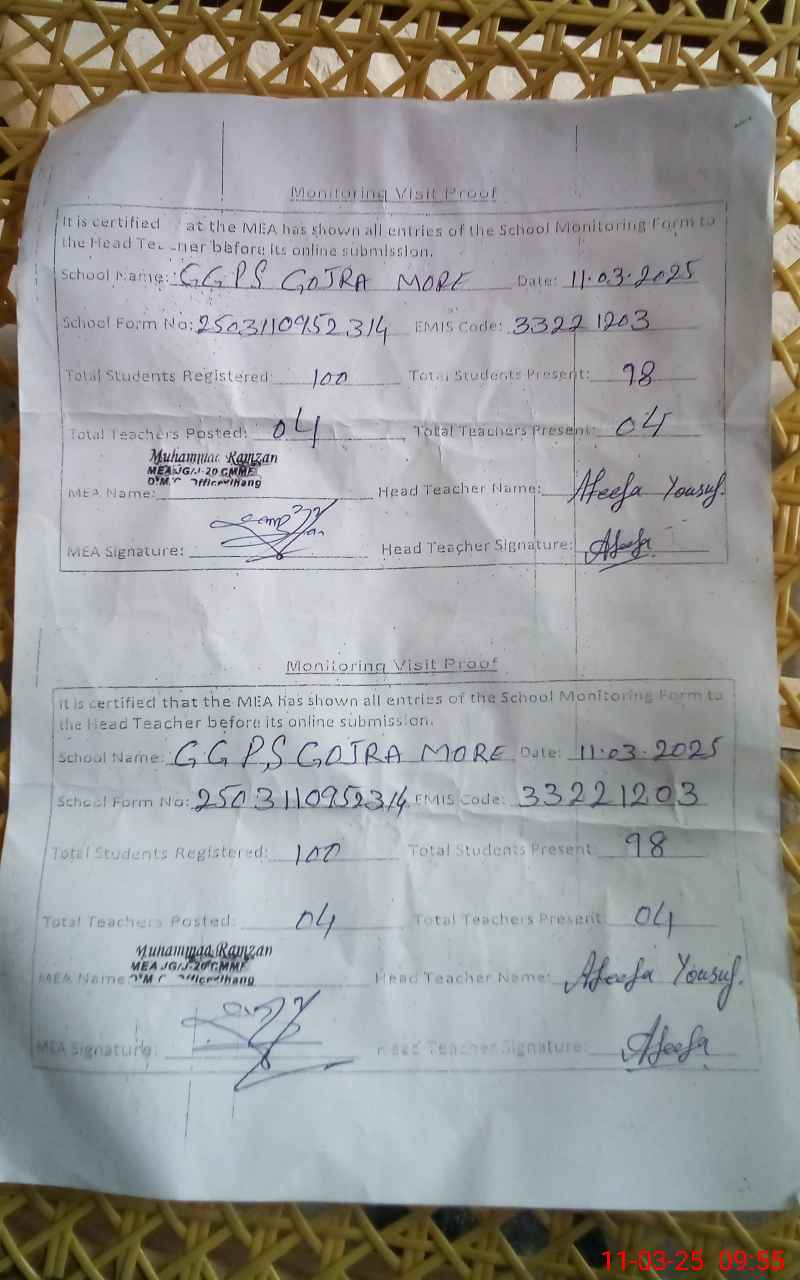 Monitoring Visit Proof
It is certified at the MEA has shown all entries of the School Monitoring Form to
the Head Te ner before its online submission.
School Name: GGPS GOJRA MORE Date: 11.03.2025
School Form No: 2503110952314 EMIS Code: 33221203
Total Students Registered: 100 Total Students Present: 98
Total Teachers Posted: 04 Total Teachers Present: 04
Muhammad Ramzan
MEA JG/J-20 CMMF
Office Jhang
MEA Name: Head Teacher Name: Afeefa Yousuf.
MEA Signature: Head Teacher Signature: Afeefa
Monitoring Visit Proof
It is certified that the MEA has shown all entries of the School Monitoring Form to
the Head Teacher before its online submission.
School Name: GGPS GOJRA MORE Date: 11.03.2025
School Form No: 2503110952314 EMIS Code: 33221203
Total Students Registered: 100 Total Students Present: 98
Total Teachers Posted: 04 Total Teachers Present 04
Muhammad Ramzan
MEA JG/J-20 CMMF
Office Jhang
MEA Name Head Teacher Name: Afeefa Yousuf.
MEA Signature: Head Teacher Signature: Afeefa
11-03-25 09:55